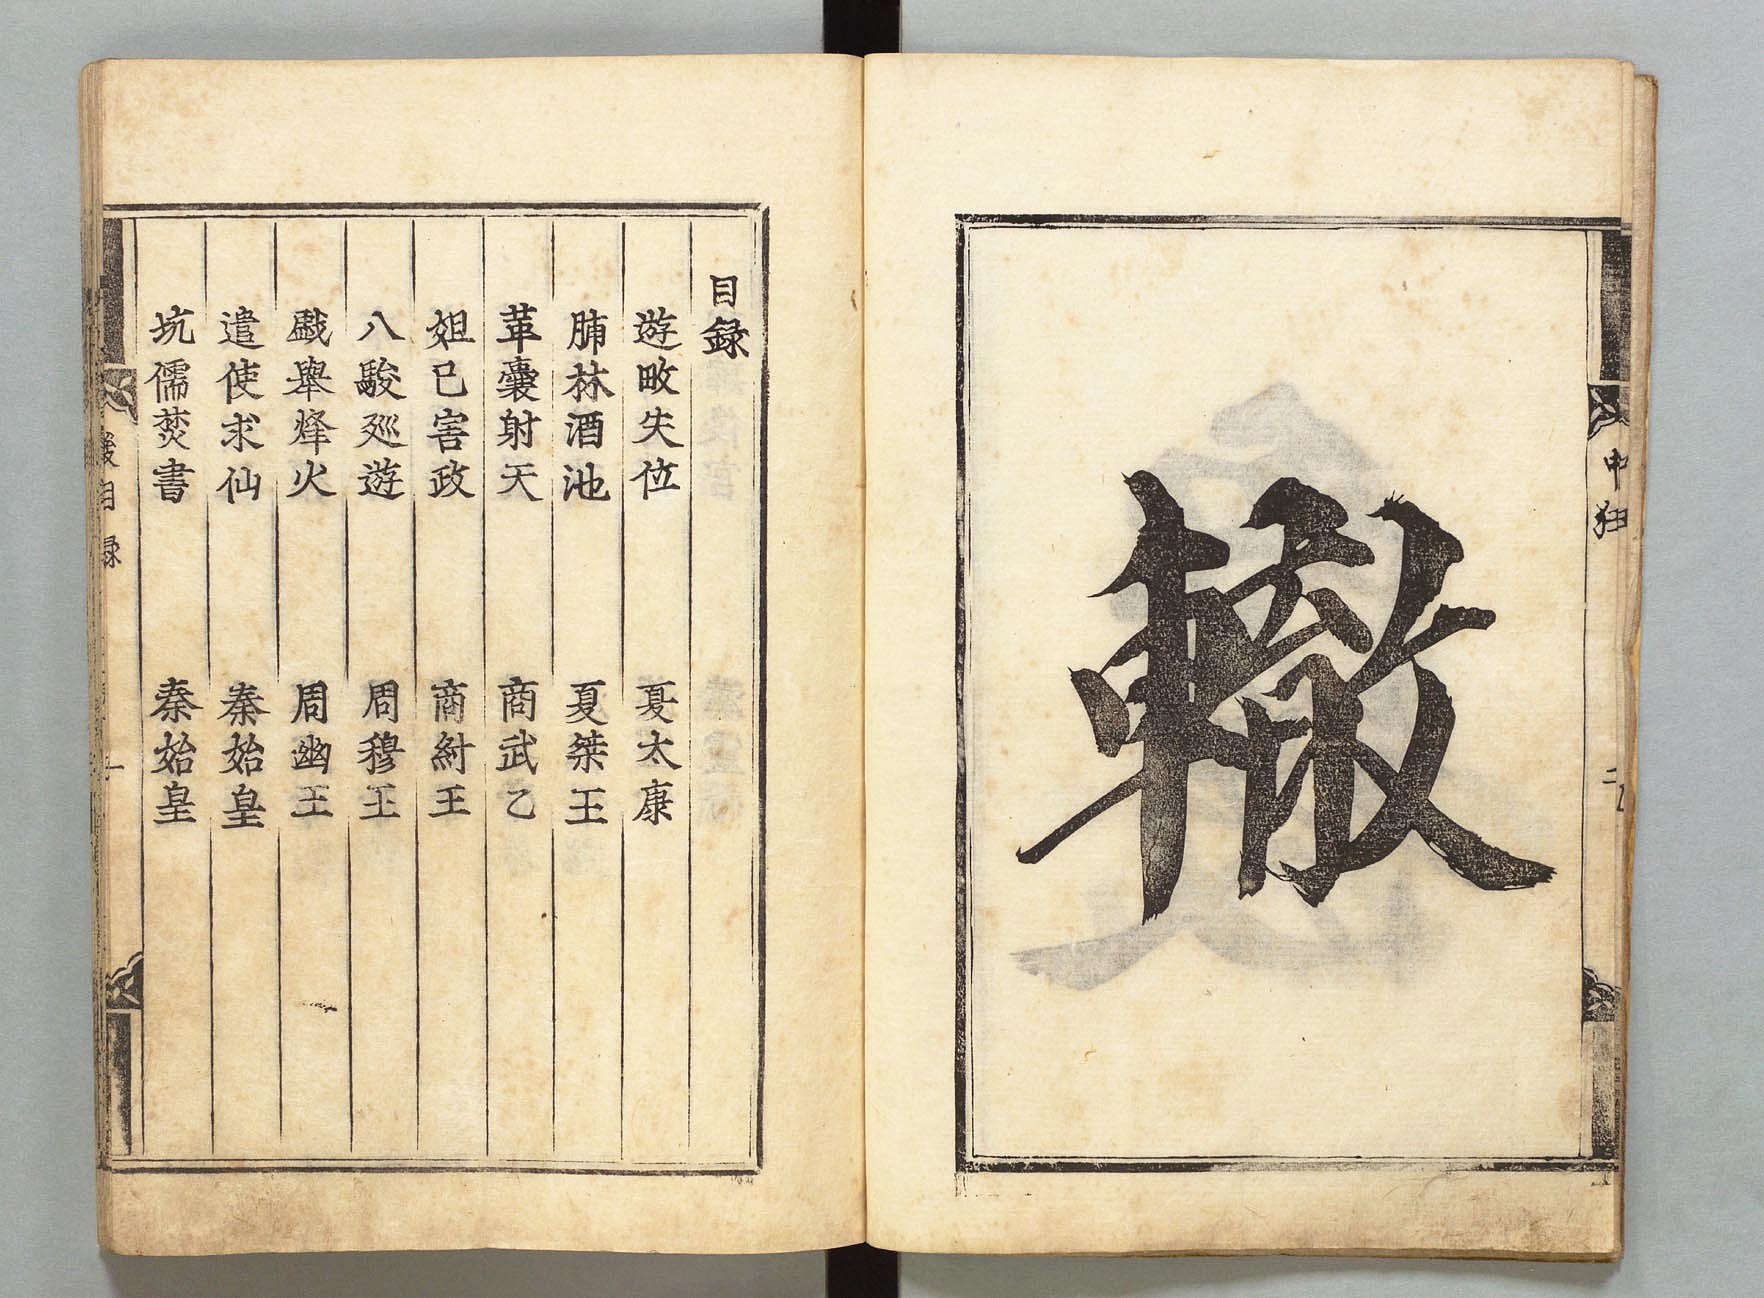 轍
目録
遊畋失位 夏太康
脯林酒池 夏桀王
革囊射天 商武乙
妲己害政 商紂王
八駿廵遊 周穆王
戲舉烽火 周幽王
遣使求仙 秦始皇
坑儒焚書 秦始皇
目録